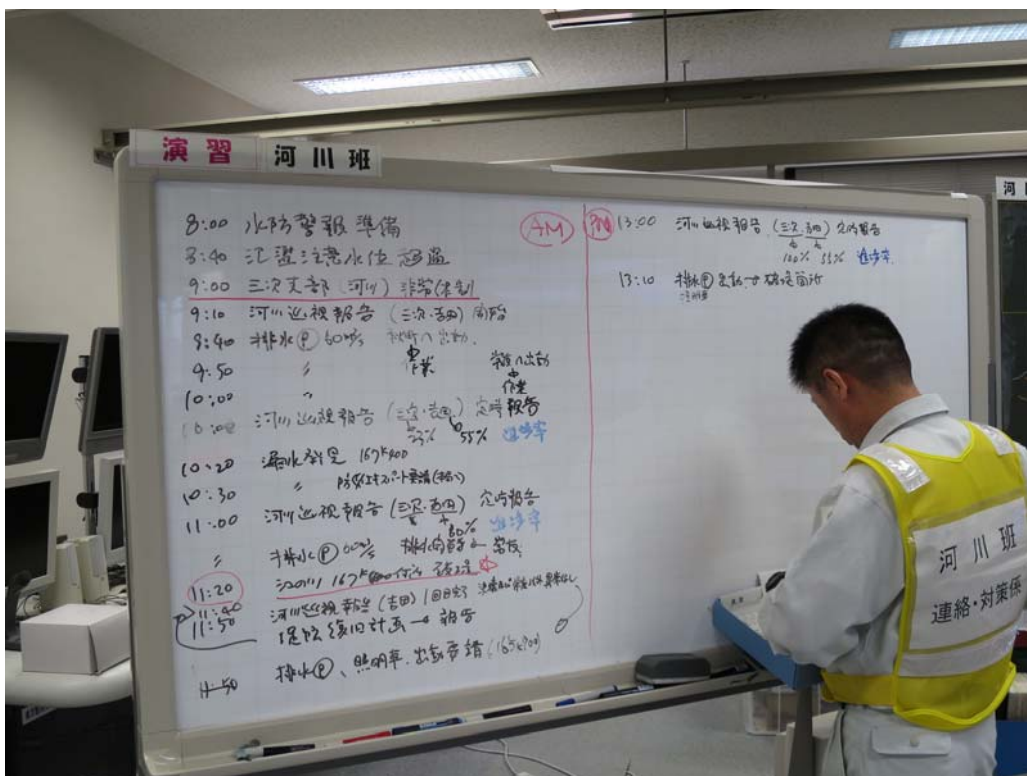 演習 河川班
AM
8:00 水防警報準備
8:40 氾濫注意水位超過
9:00 三次支部(河川)非常体制
9:10 河川巡視報告(三次・吉田)開始
9:40 排水Ⓟ 60㎥/s へ出動
9:50 〃 作業
10:00 〃
10:00 河川巡視報告(三次・吉田)定時報告
55% 進捗率
10:20 漏水発見 167k400
10:30 〃
11:00 河川巡視報告(三次・吉田)定時報告
80% 進捗率
〃 排水Ⓟ
11:20 江の川 167k400付近 破堤
11:40 河川巡視報告(吉田)1回目完了
11:50 堤防復旧計画→報告
11:50 排水Ⓟ、照明車、出動要請
PM
13:00 河川巡視報告(三次・吉田)定時報告
100% 55% 進捗率
13:10 排水Ⓟ 出動→破堤箇所
河川班
連絡・対策係